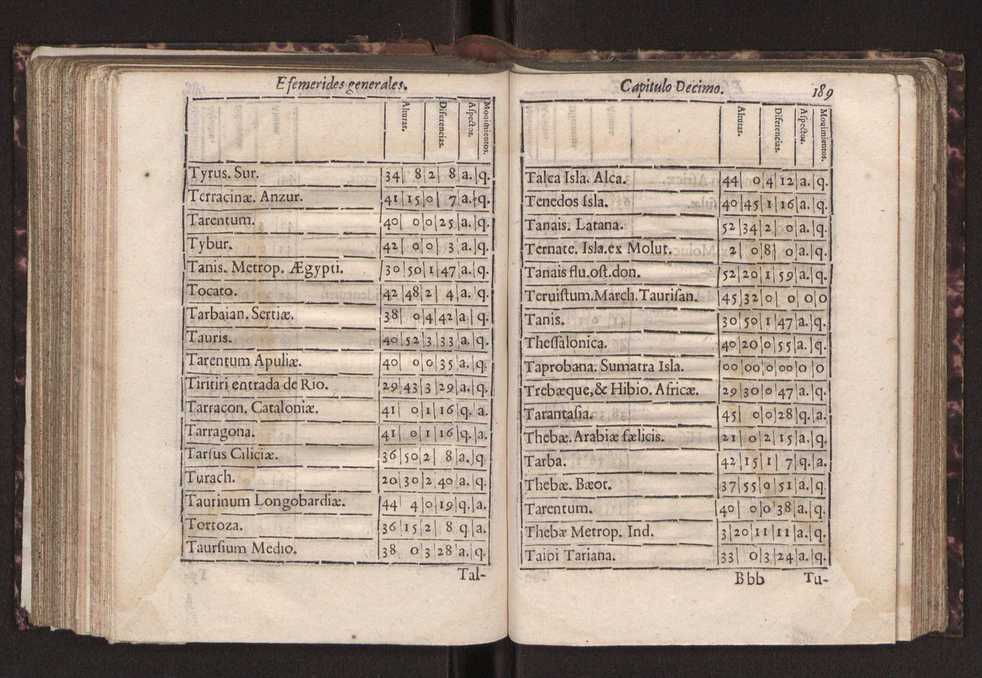 Efemerides generales.
Alturas. Diferencias. Aspectos. Mouimientos.
Tyrus. Sur. 34 8 2 8 a. q.
Terracinæ. Anzur. 41 15 0 7 a. q.
Tarentum. 40 0 0 25 a. q.
Tybur. 42 0 0 3 a. q.
Tanis. Metrop. Ægypti. 30 50 1 47 a. q.
Tocato. 42 48 2 4 a. q.
Tarbaian. Sertiæ. 38 0 4 42 a. q.
Tauris. 40 52 3 33 a. q.
Tarentum Apuliæ. 40 0 0 35 a. q.
Tiritiri entrada de Rio. 29 43 3 29 a. q.
Tarracon. Cataloniæ. 41 0 1 16 q. a.
Tarragona. 41 0 1 16 q. a.
Tarsus Ciliciæ. 36 50 2 8 a. q.
Turach. 20 30 2 40 a. q.
Taurinum Longobardiæ. 44 4 0 19 q. a.
Tortoza. 36 15 2 8 q a.
Taursium Medio. 38 0 3 28 a. q.
Tal-
Capitulo Decimo. 189
Alturas. Diferencias. Aspectos. Mouimientos.
Talca Isla. Alca. 44 0 4 12 a. q.
Tenedos ſsla. 40 45 1 16 a. q.
Tanais. Latana. 52 34 2 0 a. q.
Ternate. Isla.ex Molut. 2 0 8 0 a. q.
Tanais flu.ost.don. 52 20 1 59 a. q.
Teruistum.March.Taurisan. 45 32 0 0 0 0
Tanis. 30 50 1 47 a. q.
Thessalonica. 40 20 0 55 a. q.
Taprobana. Sumatra Isla. 00 00 0 00 0 0
Trebæque,& Hibio. Africæ. 29 30 0 47 a. q.
Tarantasia. 45 0 0 28 q. a.
Thebæ. Arabiæ fælicis. 21 0 2 15 a. q.
Tarba. 42 15 1 7 q. a.
Thebæ. Bæot. 37 55 0 51 a. q.
Tarentum. 40 0 0 38 a. q.
Thebæ Metrop. Ind. 3 20 11 11 a. q.
Taidi Tariana. 33 0 3 24 a. q.
Bbb Tu-